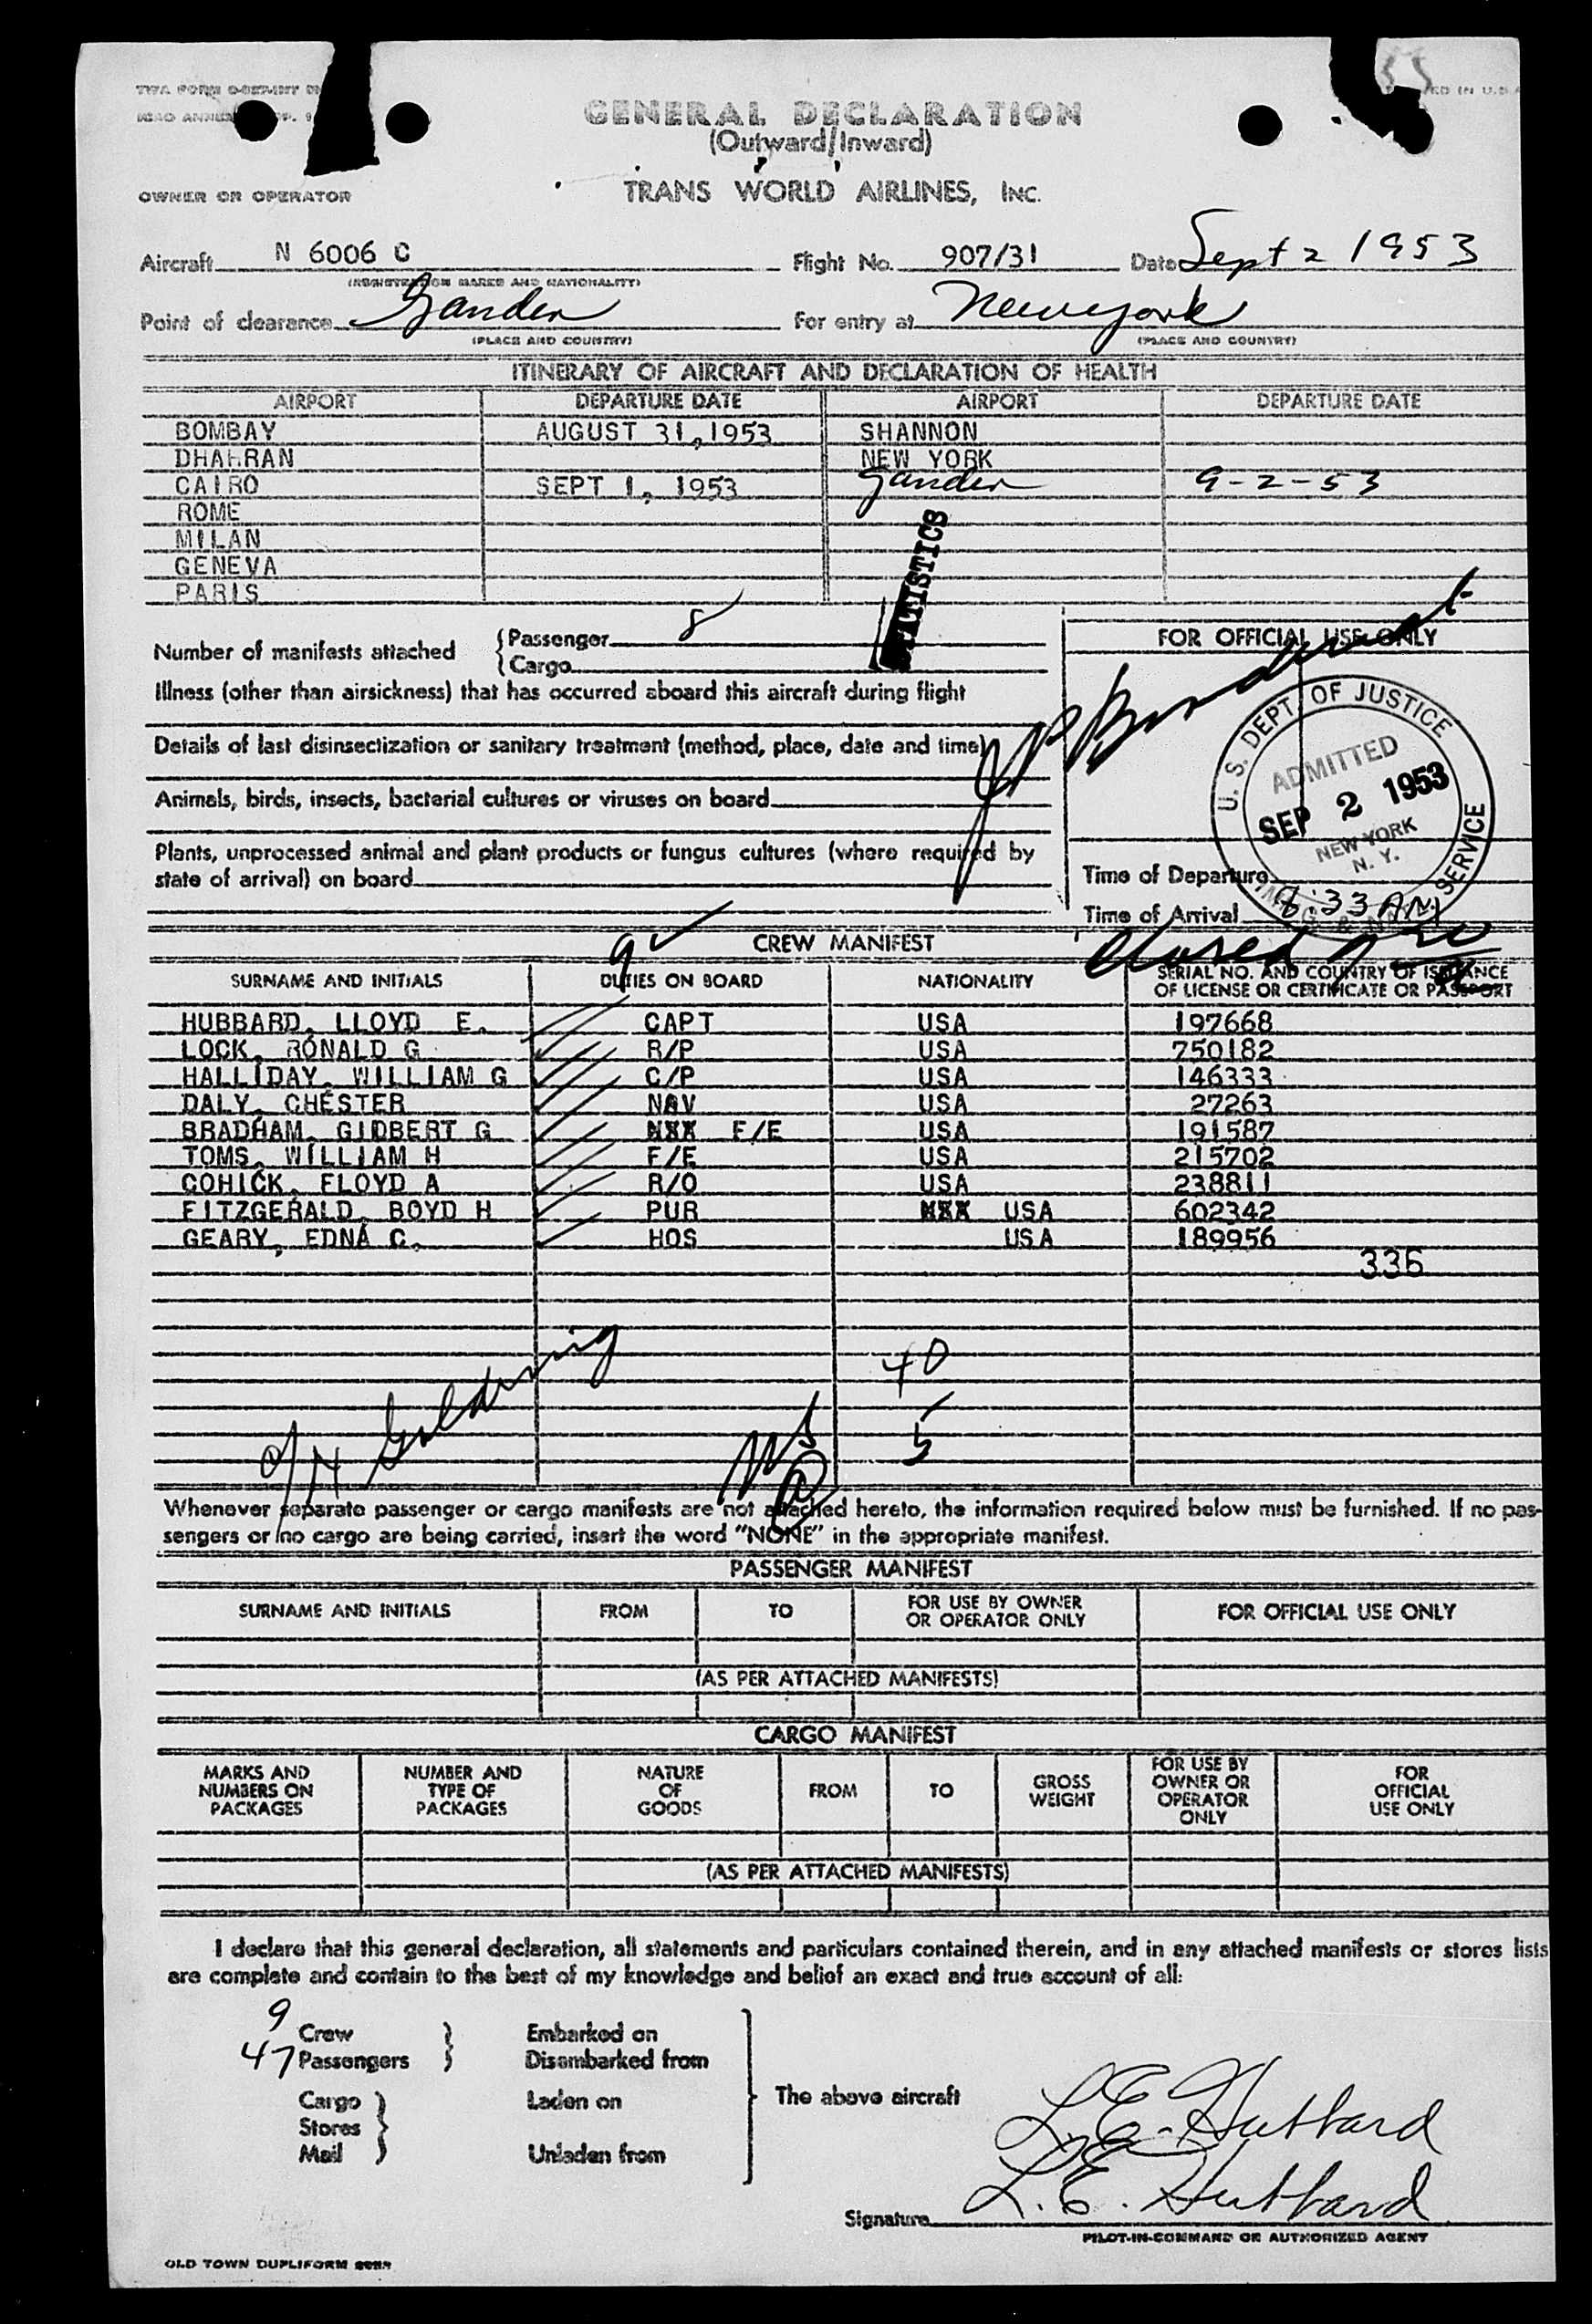 GENERAL DECLARATION
(Outward/Inward)
OWNER OR OPERATOR TRANS WORLD AIRLINES, INC.
Aircraft N 6006 C Flight No. 907/31 Date Sept 2 1953
(REGISTRATION MARKS AND NATIONALITY)
Point of clearance Gander For entry at New york
(PLACE AND COUNTRY) (PLACE AND COUNTRY)
ITINERARY OF AIRCRAFT AND DECLARATION OF HEALTH
AIRPORT DEPARTURE DATE AIRPORT DEPARTURE DATE
BOMBAY AUGUST 31, 1953 SHANNON
DHAHRAN NEW YORK
CAIRO SEPT 1, 1953 Gander 9-2-53
ROME
MILAN
GENEVA
PARIS
Number of manifests attached Passenger 8
Cargo
FOR OFFICIAL USE ONLY
Illness (other than airsickness) that has occurred aboard this aircraft during flight
Details of last disinsectization or sanitary treatment (method, place, date and time)
Animals, birds, insects, bacterial cultures or viruses on board
Plants, unprocessed animal and plant products or fungus cultures (where required by
state of arrival) on board
U. S. DEPT. OF JUSTICE
ADMITTED
SEP 2 1953
NEW YORK
N. Y.
SERVICE
Time of Departure
Time of Arrival 8:33 AM
9 Closed
CREW MANIFEST
SURNAME AND INITIALS DUTIES ON BOARD NATIONALITY SERIAL NO. AND COUNTRY OF ISSUANCE
OF LICENSE OR CERTIFICATE OR PASSPORT
HUBBARD, LLOYD E. CAPT USA 197668
LOCK, RONALD G R/P USA 750182
HALLIDAY, WILLIAM G C/P USA 146333
DALY, CHESTER NAV USA 27263
BRADHAM, GIDBERT G F/E USA 191587
TOMS, WILLIAM H F/E USA 215702
COHICK, FLOYD A R/O USA 238811
FITZGERALD, BOYD H PUR USA 602342
GEARY, EDNA C. HOS USA 189956
336
40
5
Whenever separate passenger or cargo manifests are not attached hereto, the information required below must be furnished. If no pas-
sengers or no cargo are being carried, insert the word "NONE" in the appropriate manifest.
PASSENGER MANIFEST
SURNAME AND INITIALS FROM TO FOR USE BY OWNER OR OPERATOR ONLY FOR OFFICIAL USE ONLY
(AS PER ATTACHED MANIFESTS)
CARGO MANIFEST
MARKS AND NUMBERS ON PACKAGES NUMBER AND TYPE OF PACKAGES NATURE OF GOODS FROM TO GROSS WEIGHT FOR USE BY OWNER OR OPERATOR ONLY FOR OFFICIAL USE ONLY
(AS PER ATTACHED MANIFESTS)
I declare that this general declaration, all statements and particulars contained therein, and in any attached manifests or stores lists
are complete and contain to the best of my knowledge and belief an exact and true account of all:
9 Crew Embarked on
47 Passengers Disembarked from
Cargo Laden on The above aircraft
Stores
Mail Unladen from
L. E. Hubbard
Signature L. E. Hubbard
PILOT-IN-COMMAND OR AUTHORIZED AGENT
OLD TOWN DUPLIFORM